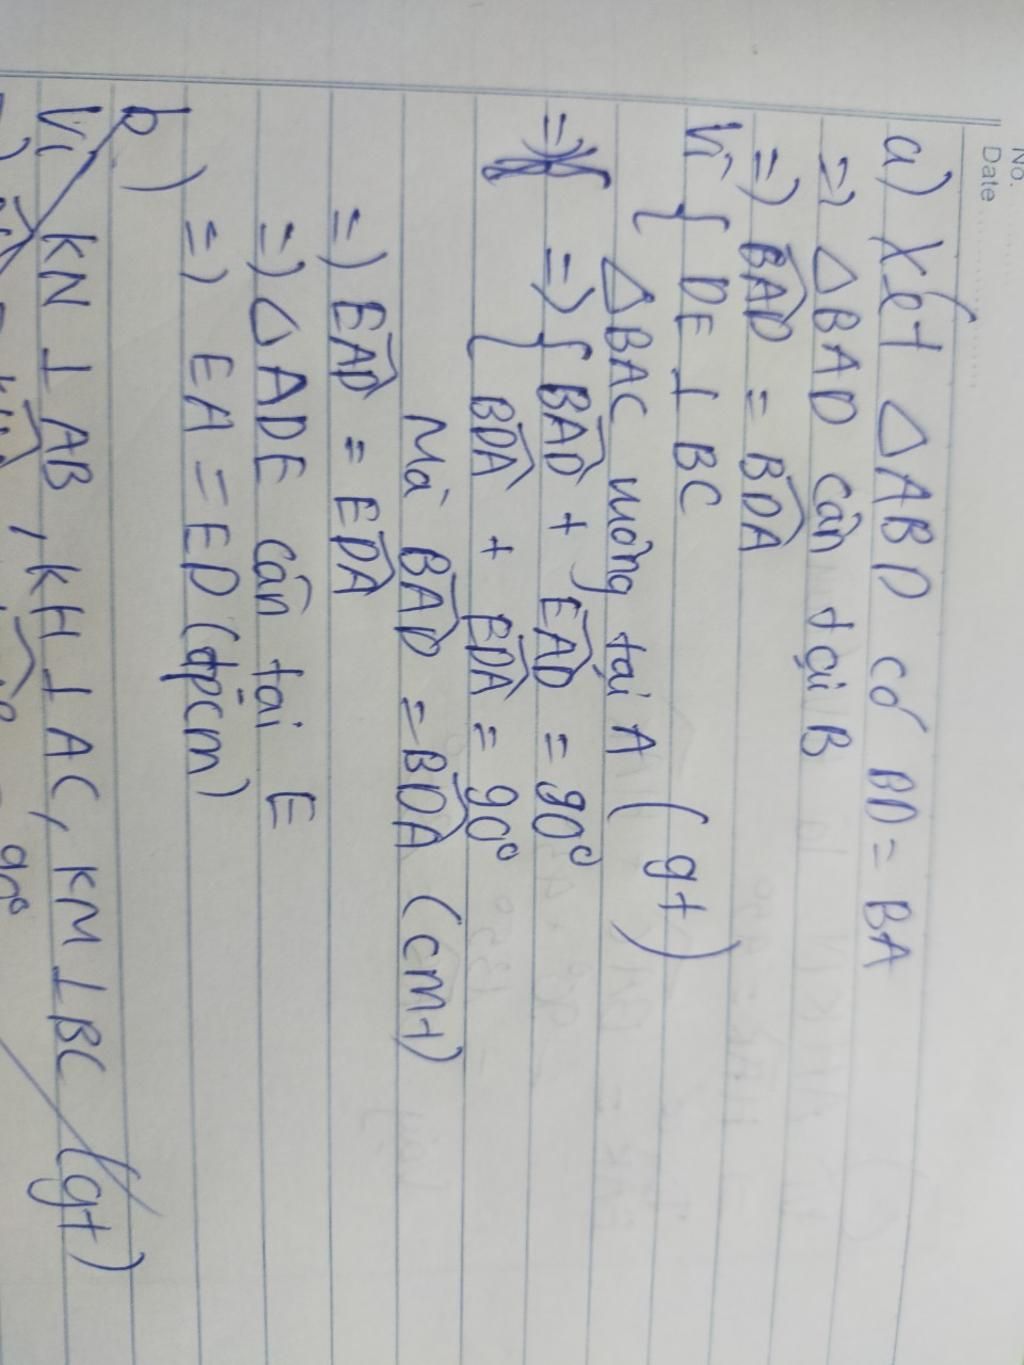 No.
Date
a) Xét △ABD có BD = BA
=> △BAD cân tại B
=> \widehat{BAD} = \widehat{BDA}
Vì { DE ⊥ BC
△BAC vuông tại A (gt)
=> => { \widehat{BAD} + \widehat{EAD} = 90°
\widehat{BDA} + \widehat{EDA} = 90°
Mà \widehat{BAD} = \widehat{BDA} (cmt)
=> \widehat{EAD} = \widehat{EDA}
=> △ADE cân tại E
=> EA = ED (đpcm)
b)
Vì KN ⊥ AB, KH ⊥ AC, KM ⊥ BC (gt)